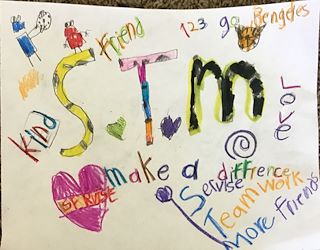 Friend
123 go Bengeles
S.T.m
Kind
Love
make a diffrence
Servise
Teamwork
More Friends